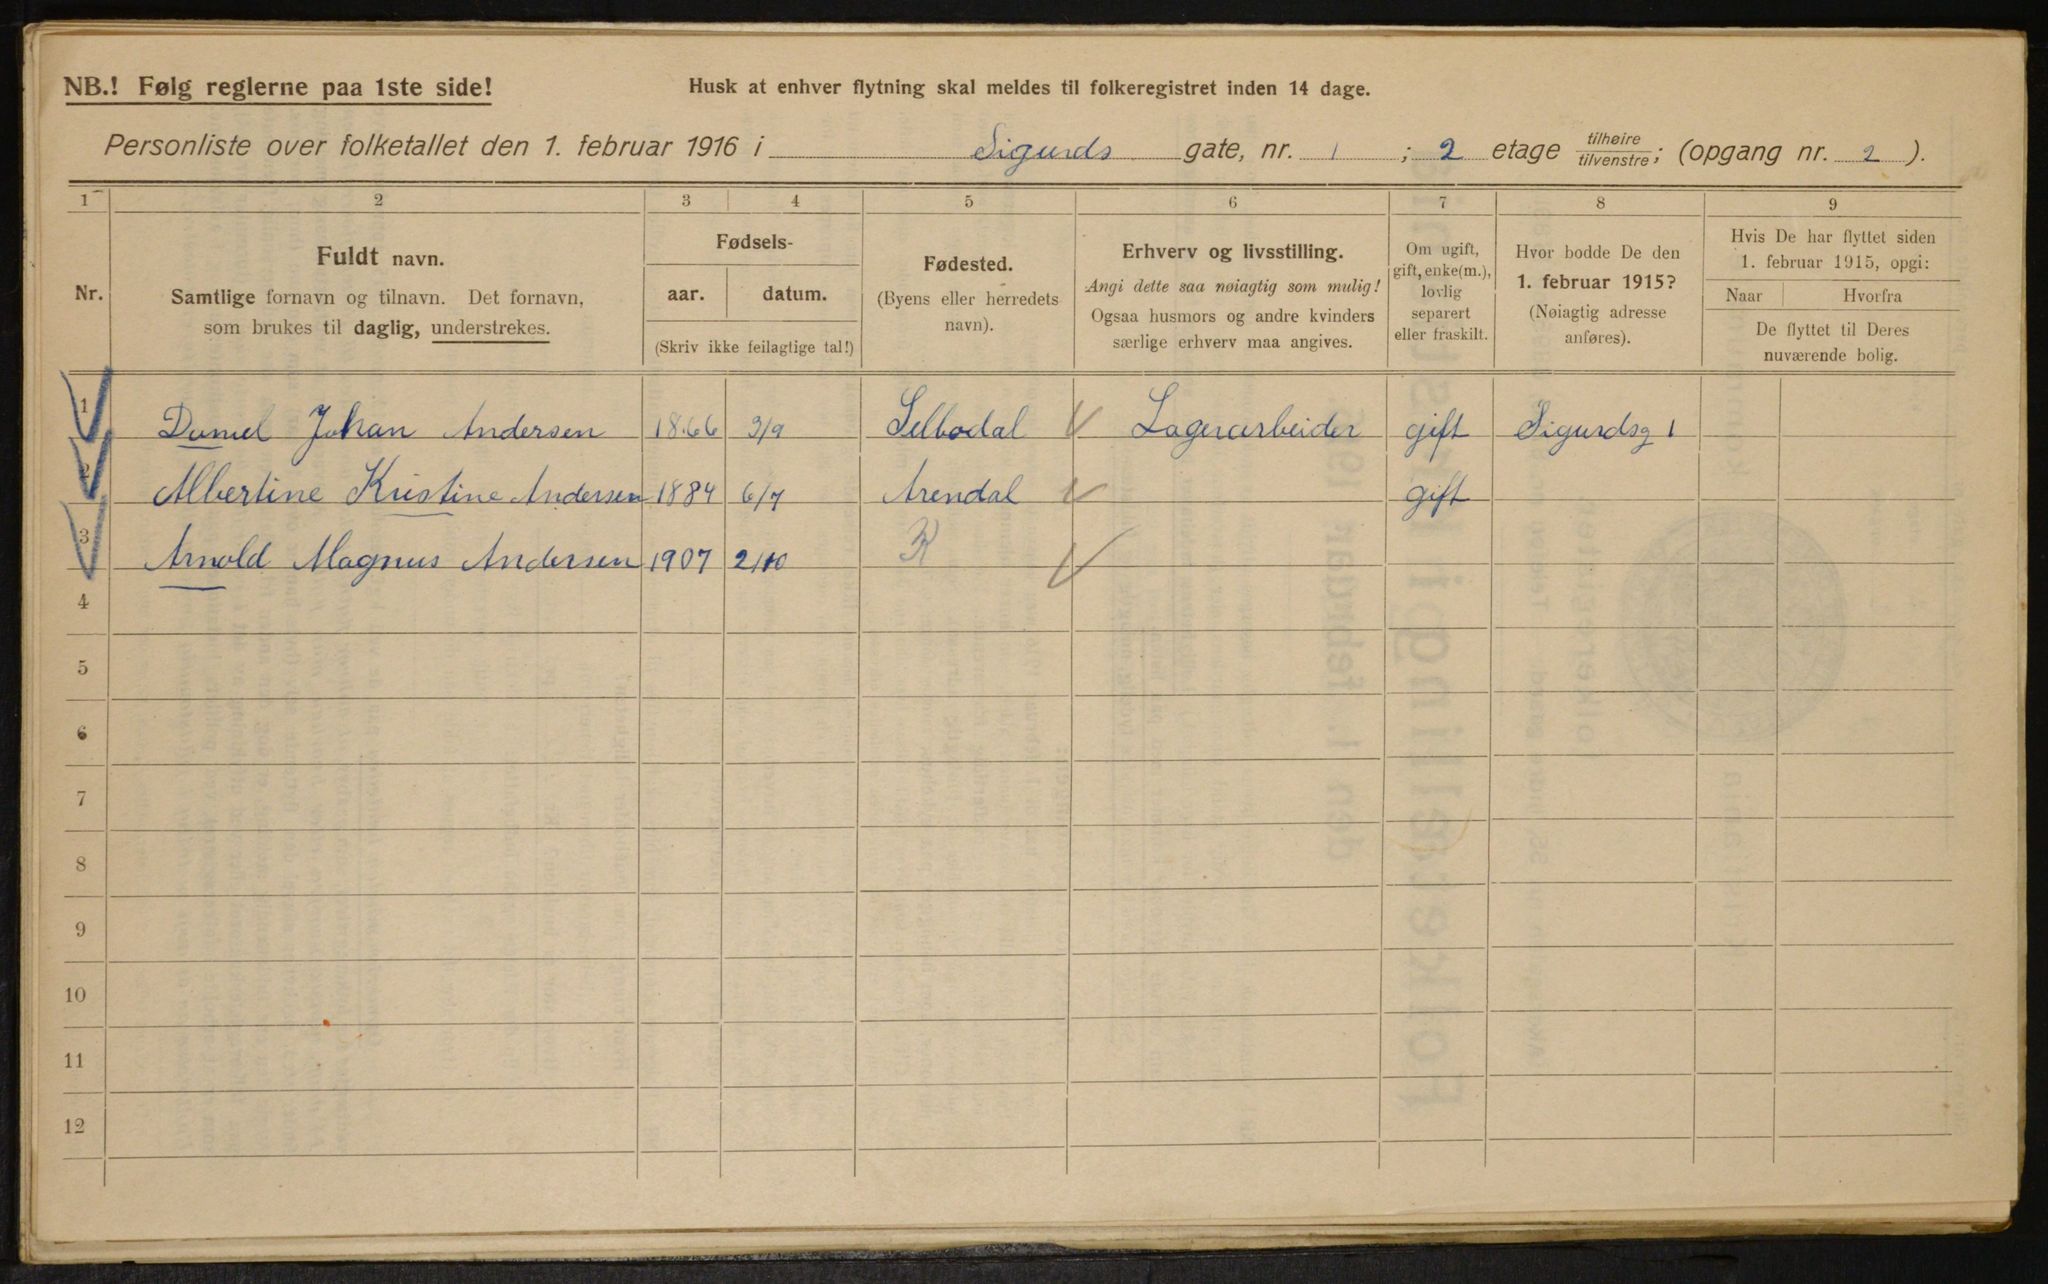 NB.! Følg reglerne paa 1ste side!
Husk at enhver flytning skal meldes til folkeregistret inden 14 dage.
Personliste over folketallet den 1. februar 1916 i Sigurds gate, nr. 1 ; 2 etage tilhøire/tilvenstre; (opgang nr. 2 ).
1 2 3 4 5 6 7 8 9
Nr.
Fuldt navn.
Samtlige fornavn og tilnavn. Det fornavn,
som brukes til daglig, understrekes.
Fødsels-
aar. datum.
(Skriv ikke feilagtige tal!)
Fødested.
(Byens eller herredets
navn).
Erhverv og livsstilling.
Angi dette saa nøiagtig som mulig!
Ogsaa husmors og andre kvinders
særlige erhverv maa angives.
Om ugift,
gift, enke(m.),
lovlig
separert
eller fraskilt.
Hvor bodde De den
1. februar 1915?
(Nøiagtig adresse
anføres).
Hvis De har flyttet siden
1. februar 1915, opgi:
Naar Hvorfra
De flyttet til Deres
nuværende bolig.
1 Daniel Johan Andersen 1866 3/9 Selbodal Lagerarbeider gift Sigurdsg 1
2 Albertine Kristine Andersen 1884 6/7 Arendal gift
3 Arnold Magnus Andersen 1907 2/10
4
5
6
7
8
9
10
11
12